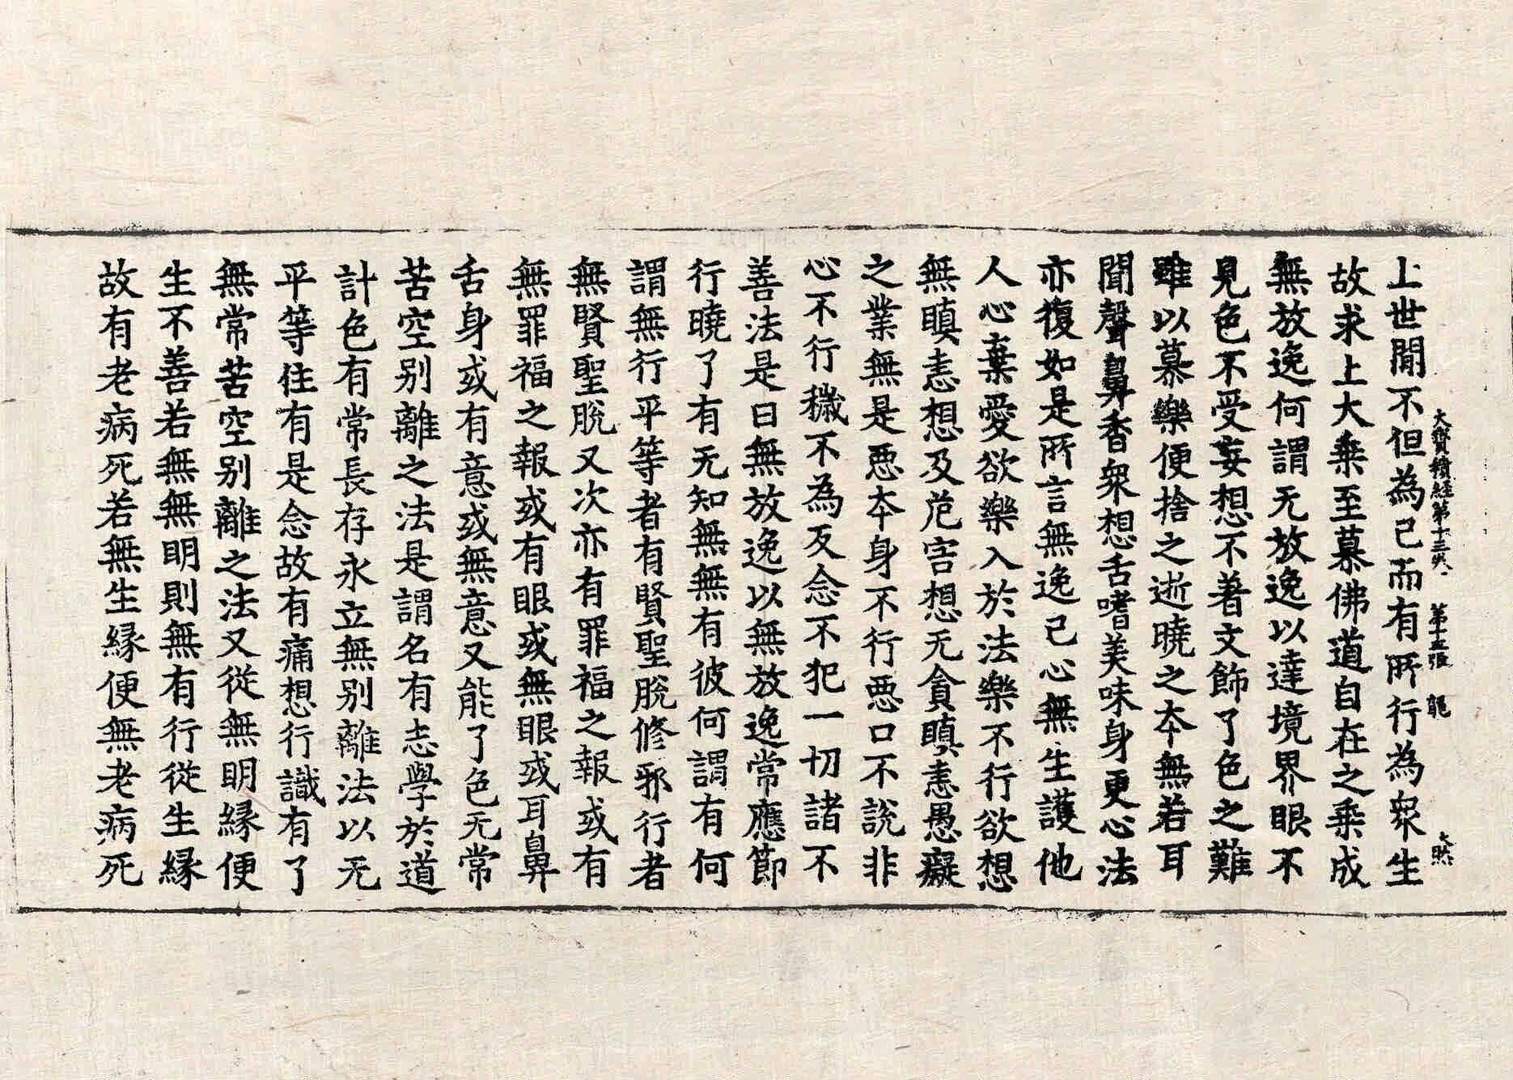 上世間不但為己而有所行為衆生
大寶積經第十三 第十五張 龍
故求上大乗至慕佛道自在之乗成
無放逸何謂无放逸以達境界眼不
見色不受妄想不著文飾了色之難
雖以慕樂便捨之逝曉之本無若耳
聞聲鼻香衆想舌嗜美味身更心法
亦復如是所言無逸己心無生護他
人心棄愛欲樂入於法樂不行欲想
無瞋恚想及危害想无貪瞋恚愚癡
之業無是惡本身不行惡口不說非
心不行穢不為反念不犯一切諸不
善法是曰無放逸以無放逸常應節
行曉了有无知無無有彼何謂有何
謂無行平等者有賢聖脫修邪行者
無賢聖脫又次亦有罪福之報或有
無罪福之報或有眼或無眼或耳鼻
舌身或有意或無意又能了色无常
苦空別離之法是謂名有志學於道
計色有常長存永立無別離法以无
平等住有是念故有痛想行識有了
無常苦空別離之法又從無明緣便
生不善若無無明則無有行從生緣
故有老病死若無生緣便無老病死